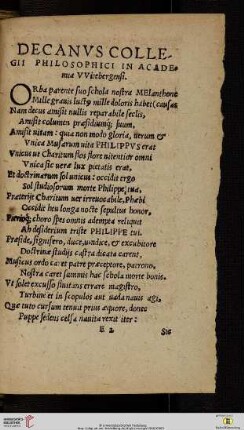 DECANVS COLLE-
GII PHILOSOPHICI IN ACADE-
mia VVitebergensi.
ORba parente suo schola nostra MElanthone
Mille grauis luctus mille doloris habet causas
Nam decus amisit nullis reparabile seclis,
Amisit columen præsidiumque suum,
Amisit uitam: qua non modo gloria, uerum &
Vnica Musarum uita PHILIPPVS erat
Vnicus ut Charitum flos flore nitentior omni
Vnica sic uera lux pietatis erat,
Et doctrinarum sol unicus: occidit ergo
Sol studiosorum morte Philippe, tua,
Præterijt Charitum uer irreuocabile, Phœbi
Occidit heu longa nocte sepultus honor,
chori spes omnis ademptaque reliquit
Ad desiderium triste PHILIPPE tui.
Præside, signifero, duce, uindice, & excubitore
Doctrinæ studijs castra dicata carent.
Musicus ordo caret patre præceptore, patrono,
Nostra caret summis hæc schola morte bonis.
Vt solet excusso fluitans errare magistro,
Turbine et in scopulos aut uada nauis agi,
Quæ tuto cursum tenuit prius æquore, donec
Puppe sedens celsa nauita rexit iter:
E 2 Sic